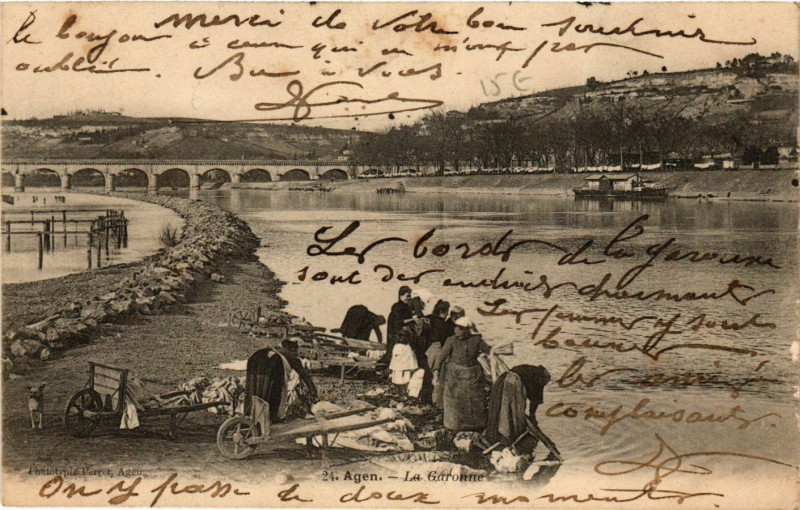 merci de Votre bon souvenir
le bonjour à ceux qui ne m'ont pas
oublié. Bien à vous.
15€
Les bords de la garonne
sont des endroits charmants
Les femmes y sont
bonnes
les amis
complaisants
Phototypie Ferret, Agen.
24. Agen. — La Garonne
On y passe de doux moments